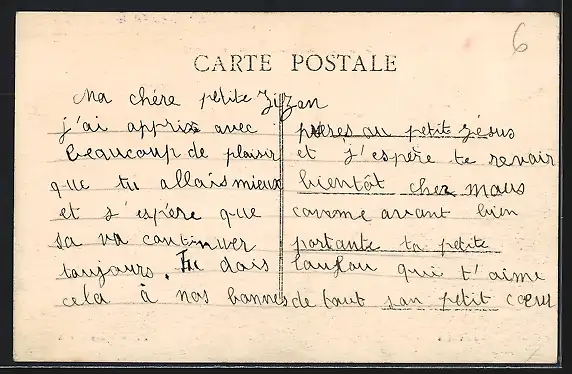 6
CARTE POSTALE
Ma chére petite Zizon
j'ai appris avec
beaucoup de plaisir
que tu allais mieux
et j'espére que
sa va continuer
toujours. Tu dois
cela à nos bonnes
prières au petit Jésus
et j'espère te revoir
bientôt chez nous
comme avant bien
portante ta petite
Loulou qui t'aime
de tout son petit cœur